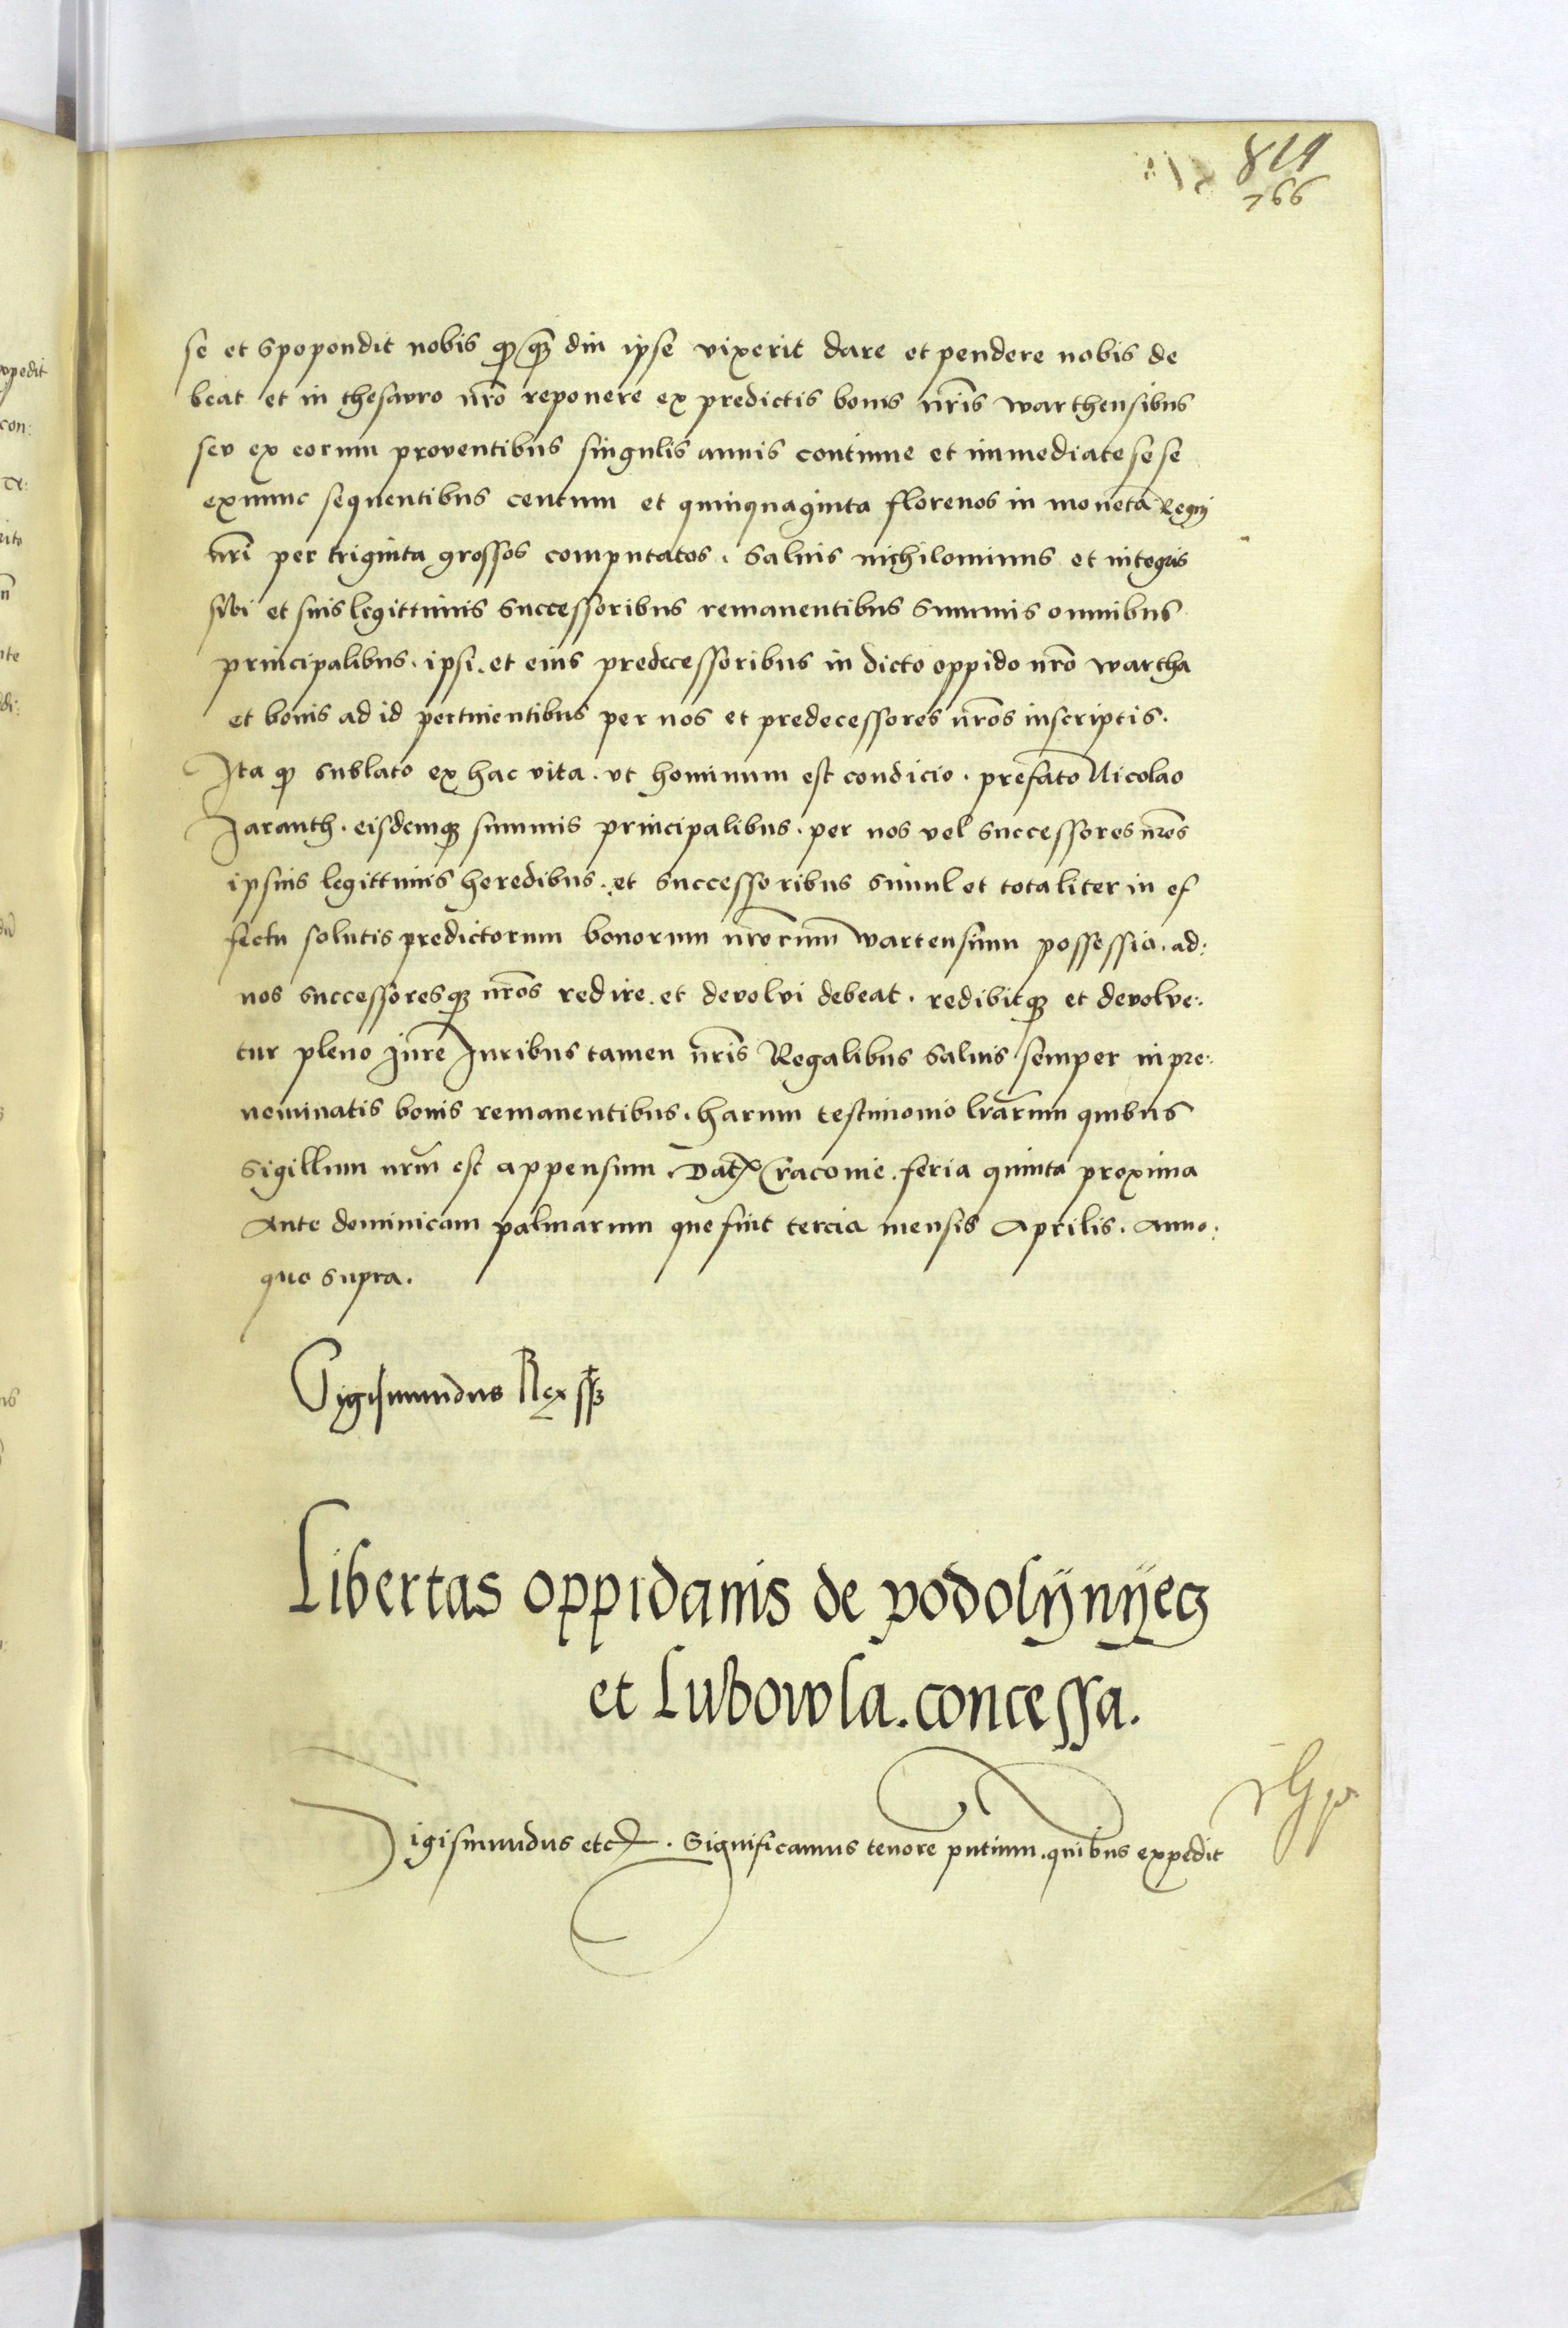 819
766
se et spopondit nobis qꝫ qꝫ diu ipse vixerit dare et pendere nobis de
beat et in thesauro nr̃o reponere ex predictis bonis nr̃is warthensibus
seu ex eorum proventibus singulis annis continue et immediate sese
exnunc sequentibus centum et quinquaginta florenos in moneta Regnj
nr̃i per triginta grossos computatos . salvis nichilominus et integris
sibi et suis legittimis successoribus remanentibus summis omnibus
principalibus . ipsi . et eius predecessoribus in dicto oppido nr̃o wartha
et bonis ad id pertinentibus per nos et predecessores nr̃os inscriptis .
Ita ꝙ sublato ex hac vita . vt hominum est condicio . prefato Nicolao
Jaranth . eisdemqꝫ summis principalibus . per nos vel successores nr̃os
ipsius legittimis heredibus . et successoribus simul et totaliter in ef
fectu solutis predictorum bonorum nr̃orum wartensium possessio . ad:
nos successoresqꝫ nr̃os redire . et devolvi debeat . redibitqꝫ et devolve:
tur pleno Jure Juribus tamen nr̃is Regalibus salvis semper in pre:
nominatis bonis remanentibus . harum testimonio lr̃arum quibus
sigillum nr̃m est appensum . Dat̃ Cracovie . feria quinta proxima
Ante dominicam palmarum que fuit tercia mensis Aprilis . Anno:
quo supra .
Sigismundus Rex ssꝫ
Libertas oppidanis de podolÿnÿecz
et Lubowla . concessa .
Sigismundus etc̃ . Significamus tenore pñtium . quibus expedit